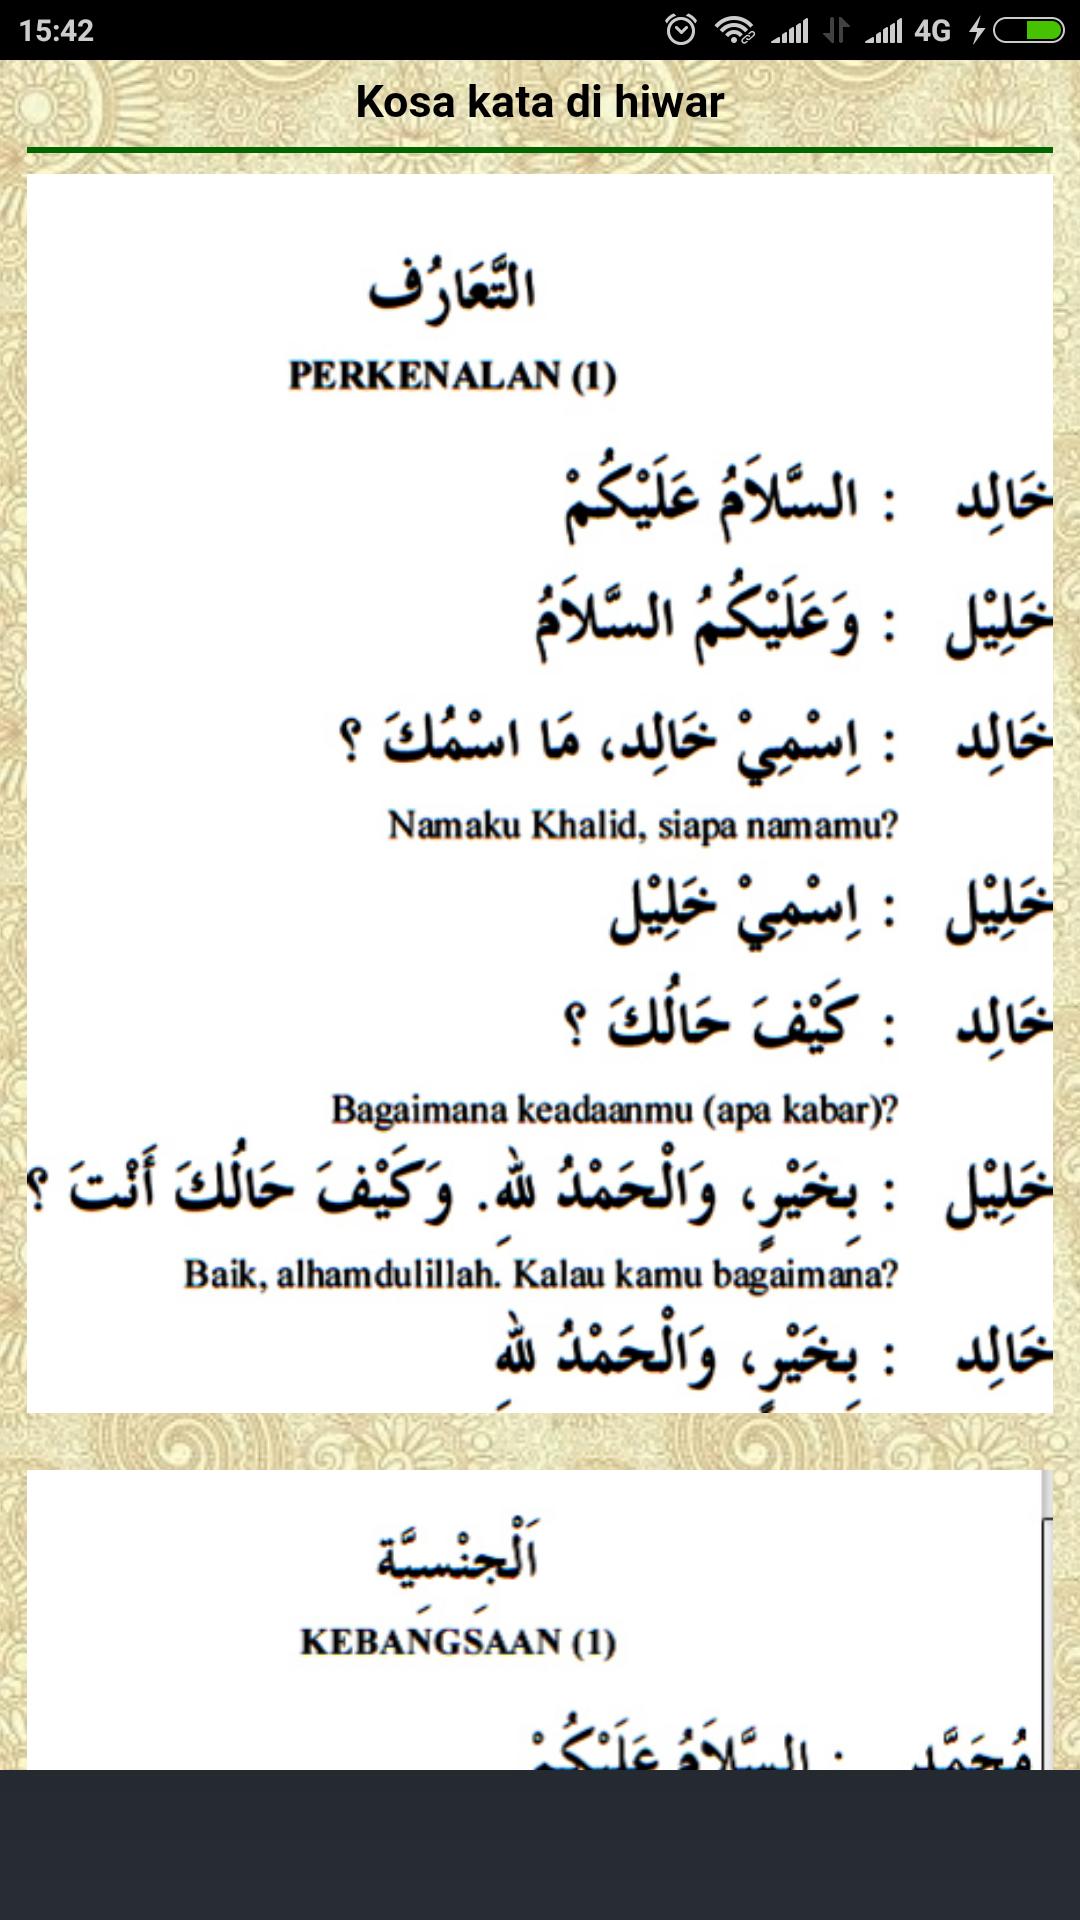 15:42 4G
Kosa kata di hiwar
التَّعَارُف
PERKENALAN (1)
خَالِد : السَّلاَمُ عَلَيْكُمْ
خَلِيْل : وَعَلَيْكُمُ السَّلاَمُ
خَالِد : اِسْمِيْ خَالِد، مَا اسْمُكَ ؟
Namaku Khalid, siapa namamu?
خَلِيْل : اِسْمِيْ خَلِيْل
خَالِد : كَيْفَ حَالُكَ ؟
Bagaimana keadaanmu (apa kabar)?
خَلِيْل : بِخَيْرٍ، وَالْحَمْدُ للهِ. وَكَيْفَ حَالُكَ أَنْتَ ؟
Baik, alhamdulillah. Kalau kamu bagaimana?
خَالِد : بِخَيْرٍ، وَالْحَمْدُ للهِ
اَلْجِنْسِيَّة
KEBANGSAAN (1)
مُحَمَّد : السَّلاَمُ عَلَيْكُمْ